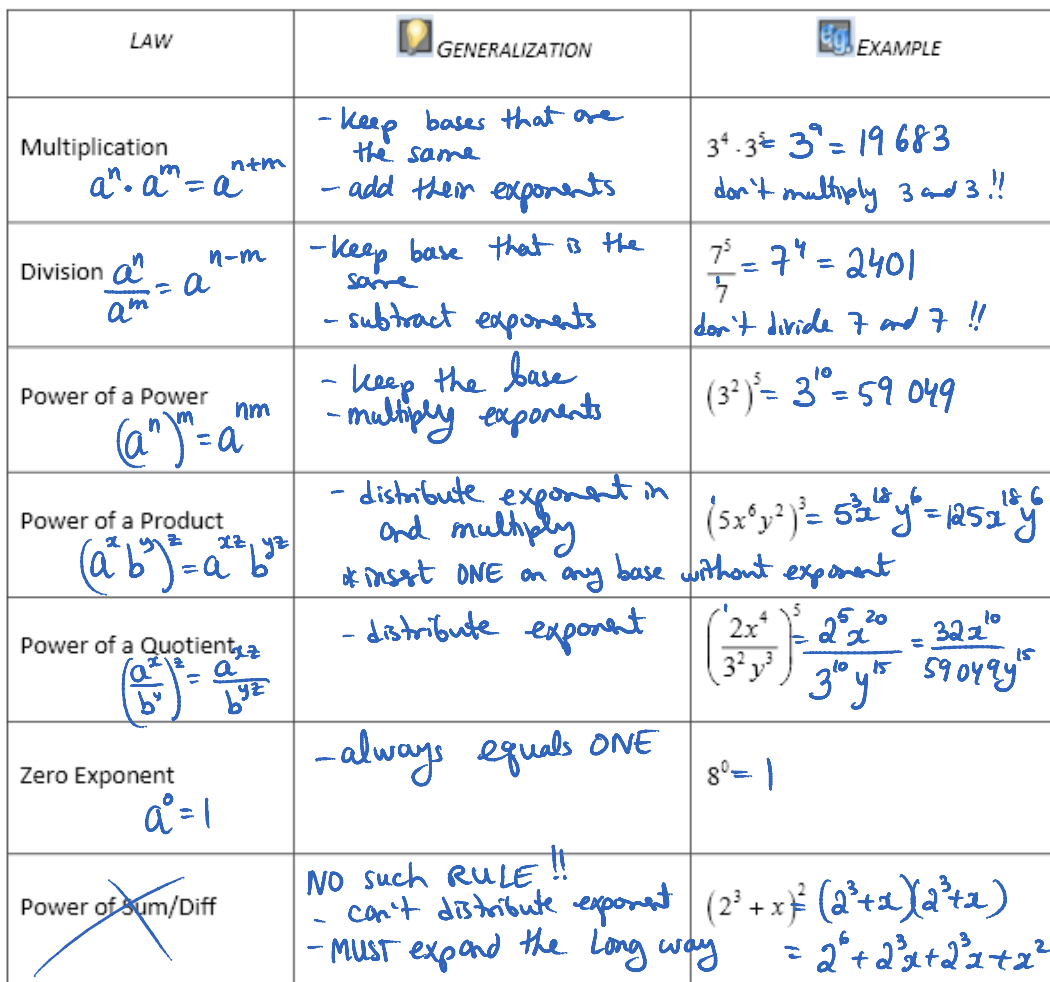 LAW
GENERALIZATION
eg. EXAMPLE
Multiplication
aⁿ · aᵐ = aⁿ⁺ᵐ
- keep bases that are
the same
- add their exponents
3⁴ · 3⁵ = 3⁹ = 19 683
don't multiply 3 and 3 !!
Division aⁿ/aᵐ = aⁿ⁻ᵐ
- keep base that is the
same
- subtract exponents
7⁵/7¹ = 7⁴ = 2401
don't divide 7 and 7 !!
Power of a Power
(aⁿ)ᵐ = aⁿᵐ
- keep the base
- multiply exponents
(3²)⁵ = 3¹⁰ = 59 049
Power of a Product
(aˣbʸ)ᶻ = aˣᶻbʸᶻ
- distribute exponent in
and multiply
* insert ONE on any base without exponent
(5¹x⁶y²)³ = 5³x¹⁸y⁶ = 125x¹⁸y⁶
Power of a Quotient
(aˣ/bʸ)ᶻ = aˣᶻ/bʸᶻ
- distribute exponent
(2¹x⁴/3²y³)⁵ = 2⁵x²⁰/3¹⁰y¹⁵ = 32x¹⁰/59049y¹⁵
Zero Exponent
a⁰ = 1
- always equals ONE
8⁰ = 1
Power of Sum/Diff
NO such RULE !!
- can't distribute exponent
- MUST expand the Long way
(2³ + x)² = (2³+x)(2³+x)
= 2⁶ + 2³x + 2³x + x²